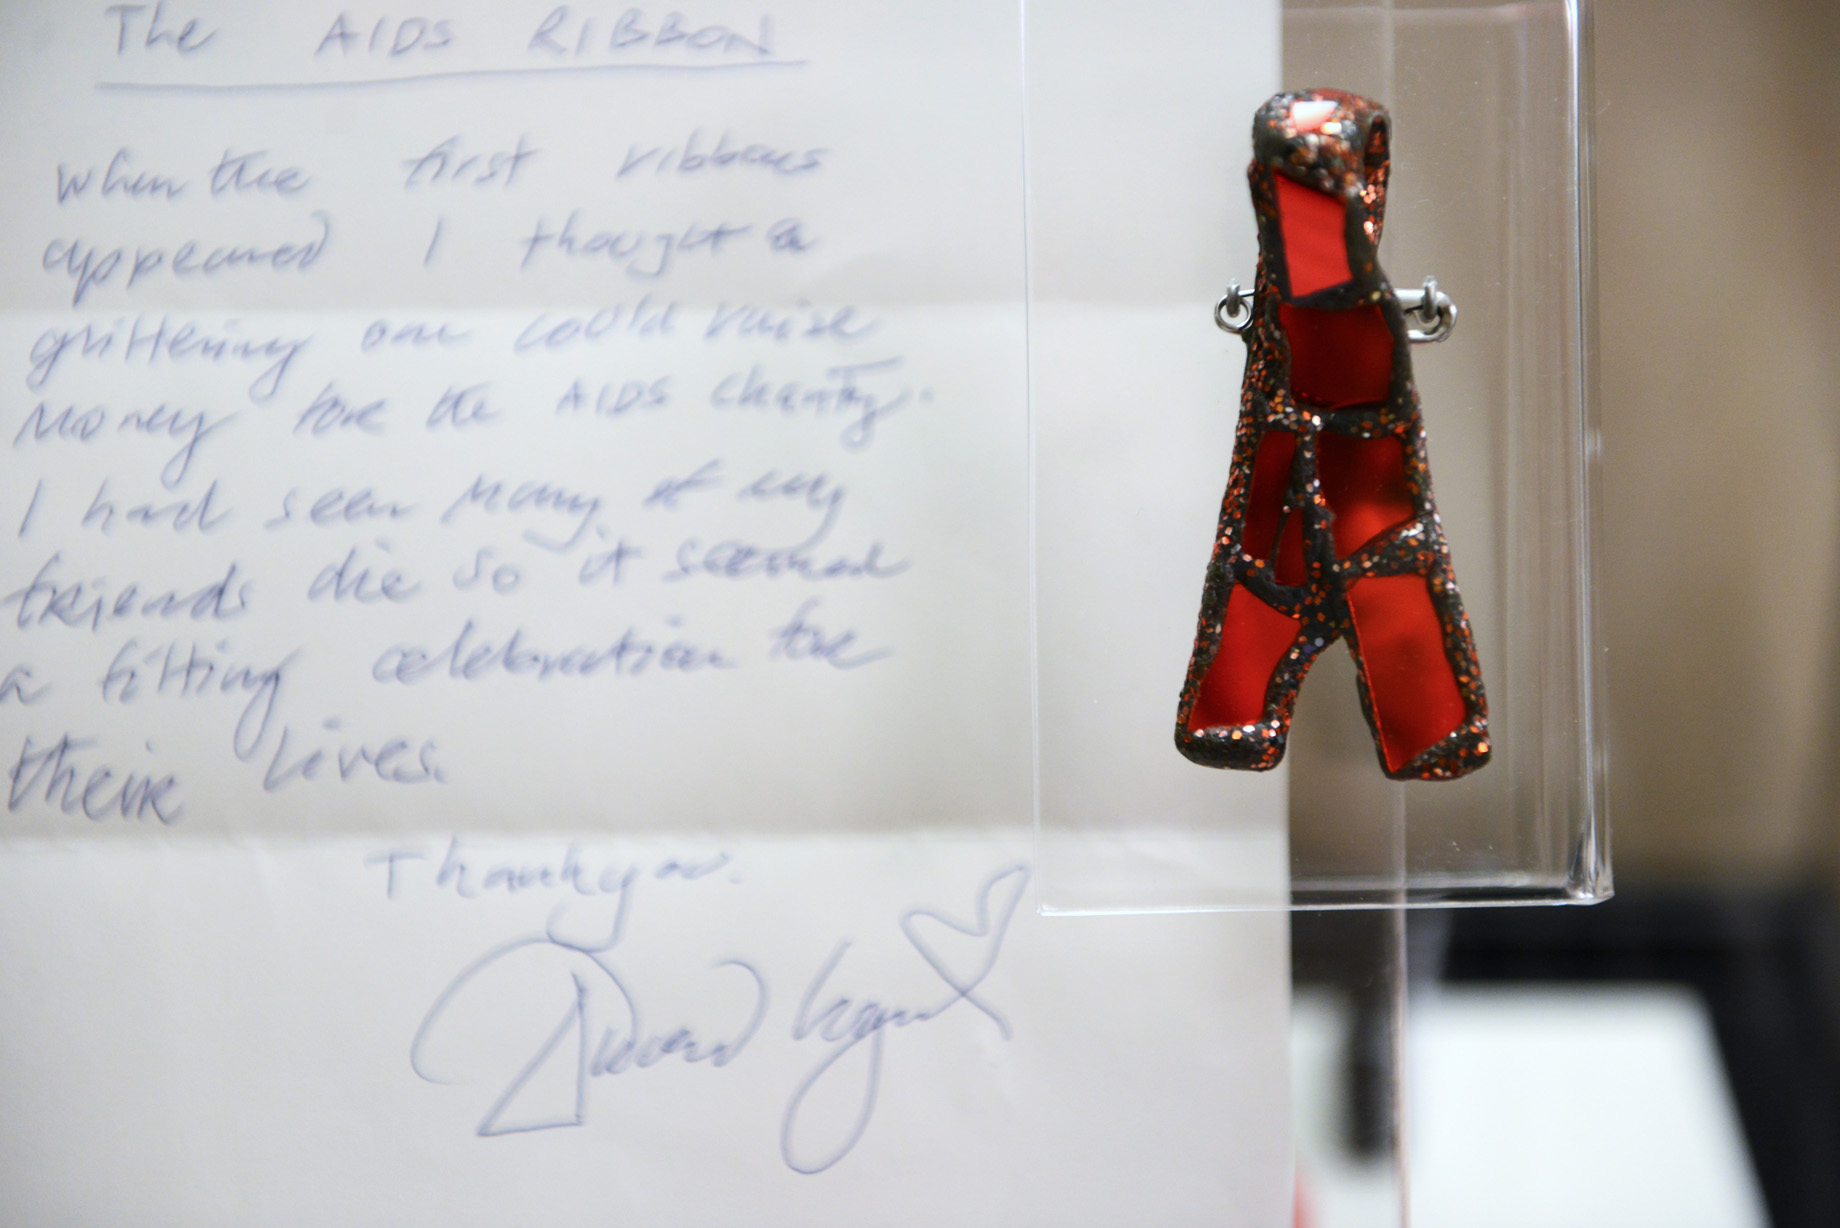 The AIDS RIBBON
When the first ribbons
appeared I thought a
glittering one could raise
money for the AIDS charity.
I had seen many of my
friends die so it seemed
a fitting celebration for
their lives.
Thankyou.
Andrew Logan